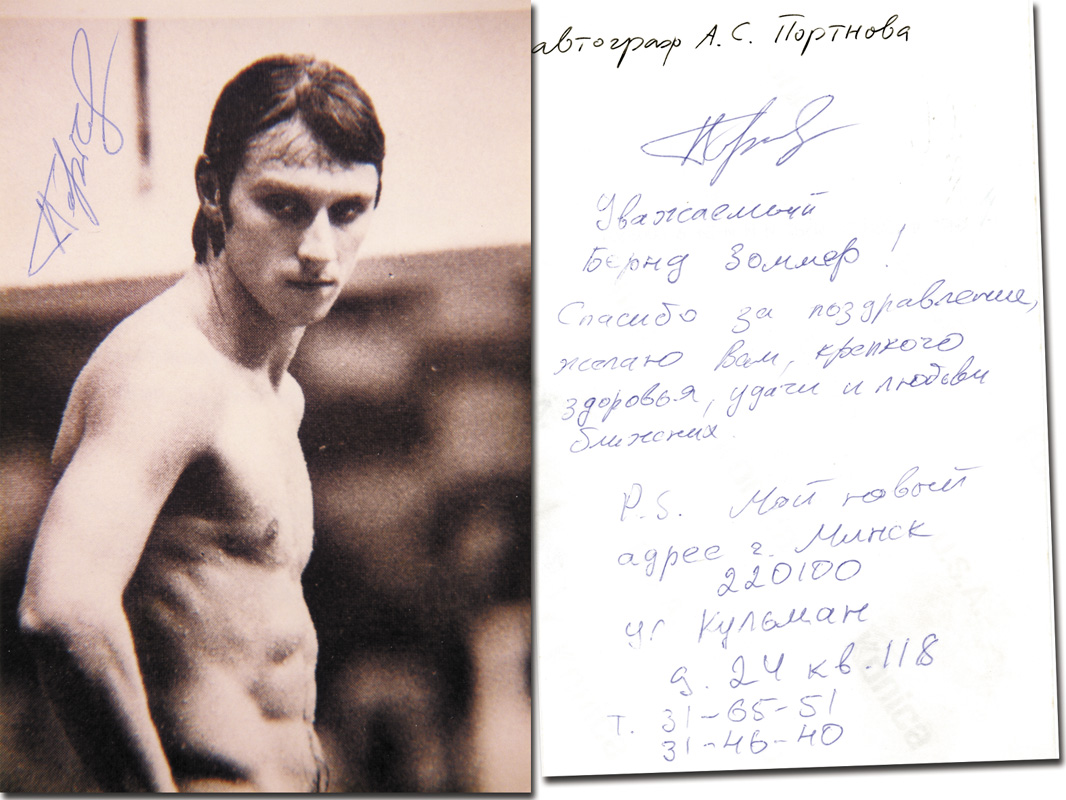 автограф А.С. Портнова
Уважаемый
Бернд Зоммер!
Спасибо за поздравление,
желаю Вам, крепкого
здоровья, удачи и любви
ближних.
P.S. Мой новый
адрес г. Минск
220100
ул Кульман
д. 24 кв. 118
т. 31-65-51
31-46-40